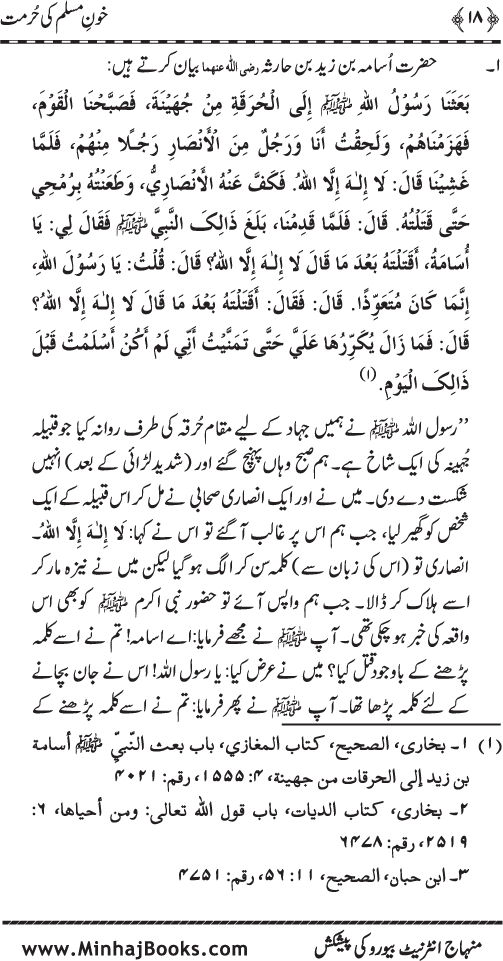 خونِ مسلم کی حُرمت ﴿۱۸﴾
۱۔ حضرت اُسامہ بن زید بن حارثہ رضی اللہ عنہما بیان کرتے ہیں:
بَعَثَنَا رَسُوْلُ اللهِ ﷺ إِلَى الْحُرَقَةِ مِنْ جُهَيْنَةَ، فَصَبَّحْنَا الْقَوْمَ،
فَهَزَمْنَاهُمْ، وَلَحِقْتُ أَنَا وَرَجُلٌ مِنَ الْأَنْصَارِ رَجُلًا مِنْهُمْ، فَلَمَّا
غَشِيْنَا قَالَ: لَا إِلٰـهَ إِلَّا اللهُ. فَكَفَّ عَنْهُ الْأَنْصَارِيُّ، وَطَعَنْتُهُ بِرُمْحِي
حَتَّى قَتَلْتُهُ. قَالَ: فَلَمَّا قَدِمْنَا، بَلَغَ ذَالِکَ النَّبِيَّ ﷺ فَقَالَ لِي: يَا
أُسَامَةُ، أَقَتَلْتَهُ بَعْدَ مَا قَالَ لَا إِلٰـهَ إِلَّا اللهُ؟ قَالَ: قُلْتُ: يَا رَسُوْلَ اللهِ،
إِنَّمَا كَانَ مُتَعَوِّذًا. قَالَ: فَقَالَ: أَقَتَلْتَهُ بَعْدَ مَا قَالَ لَا إِلٰـهَ إِلَّا اللهُ؟
قَالَ: فَمَا زَالَ يُكَرِّرُهَا عَلَيَّ حَتَّى تَمَنَّيْتُ أَنِّي لَمْ أَكُنْ أَسْلَمْتُ قَبْلَ
ذَالِکَ الْيَوْمِ.(۱)
’’رسول اللہ ﷺ نے ہمیں جہاد کے لیے مقام حُرقہ کی طرف روانہ کیا جو قبیلہ
جُہینہ کی ایک شاخ ہے۔ ہم صبح وہاں پہنچ گئے اور (شدید لڑائی کے بعد) انہیں
شکست دے دی۔ میں نے اور ایک انصاری صحابی نے مل کر اس قبیلہ کے ایک
شخص کو گھیر لیا، جب ہم اس پر غالب آ گئے تو اس نے کہا: لَا إِلٰـهَ إِلَّا اللهُ۔
انصاری تو (اس کی زبان سے) کلمہ سن کر الگ ہو گیا لیکن میں نے نیزہ مار کر
اسے ہلاک کر ڈالا۔ جب ہم واپس آئے تو حضور نبی اکرم ﷺ کو بھی اس
واقعہ کی خبر ہو چکی تھی۔ آپ ﷺ نے مجھے فرمایا: اے اسامہ! تم نے اسے کلمہ
پڑھنے کے باوجود قتل کیا؟ میں نے عرض کیا: یا رسول اللہ! اس نے جان بچانے
کے لئے کلمہ پڑھا تھا۔ آپ ﷺ نے پھر فرمایا: تم نے اسے کلمہ پڑھنے کے
(۱) ۱۔ بخاری، الصحیح، کتاب المغازي، باب بعث النّبيّ ﷺ أسامة
بن زيد إلى الحرقات من جهينة، ۴: ۱۵۵۵، رقم: ۴۰۲۱
۲۔ بخاری، کتاب الدیات، باب قول الله تعالى: ومن أحياها، ۶:
۲۵۱۹، رقم: ۶۴۷۸
۳۔ ابن حبان، الصحیح، ۱۱: ۵۶، رقم: ۴۷۵۱
منہاج انٹرنیٹ بیورو کی پیشکش www.MinhajBooks.com